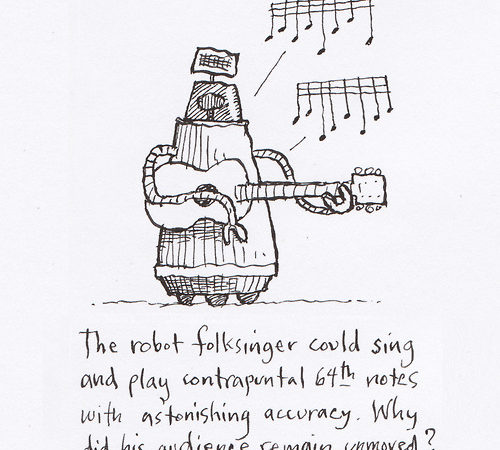 The robot folksinger could sing
and play contrapuntal 64th notes
with astonishing accuracy. Why
did his audience remain unmoved?